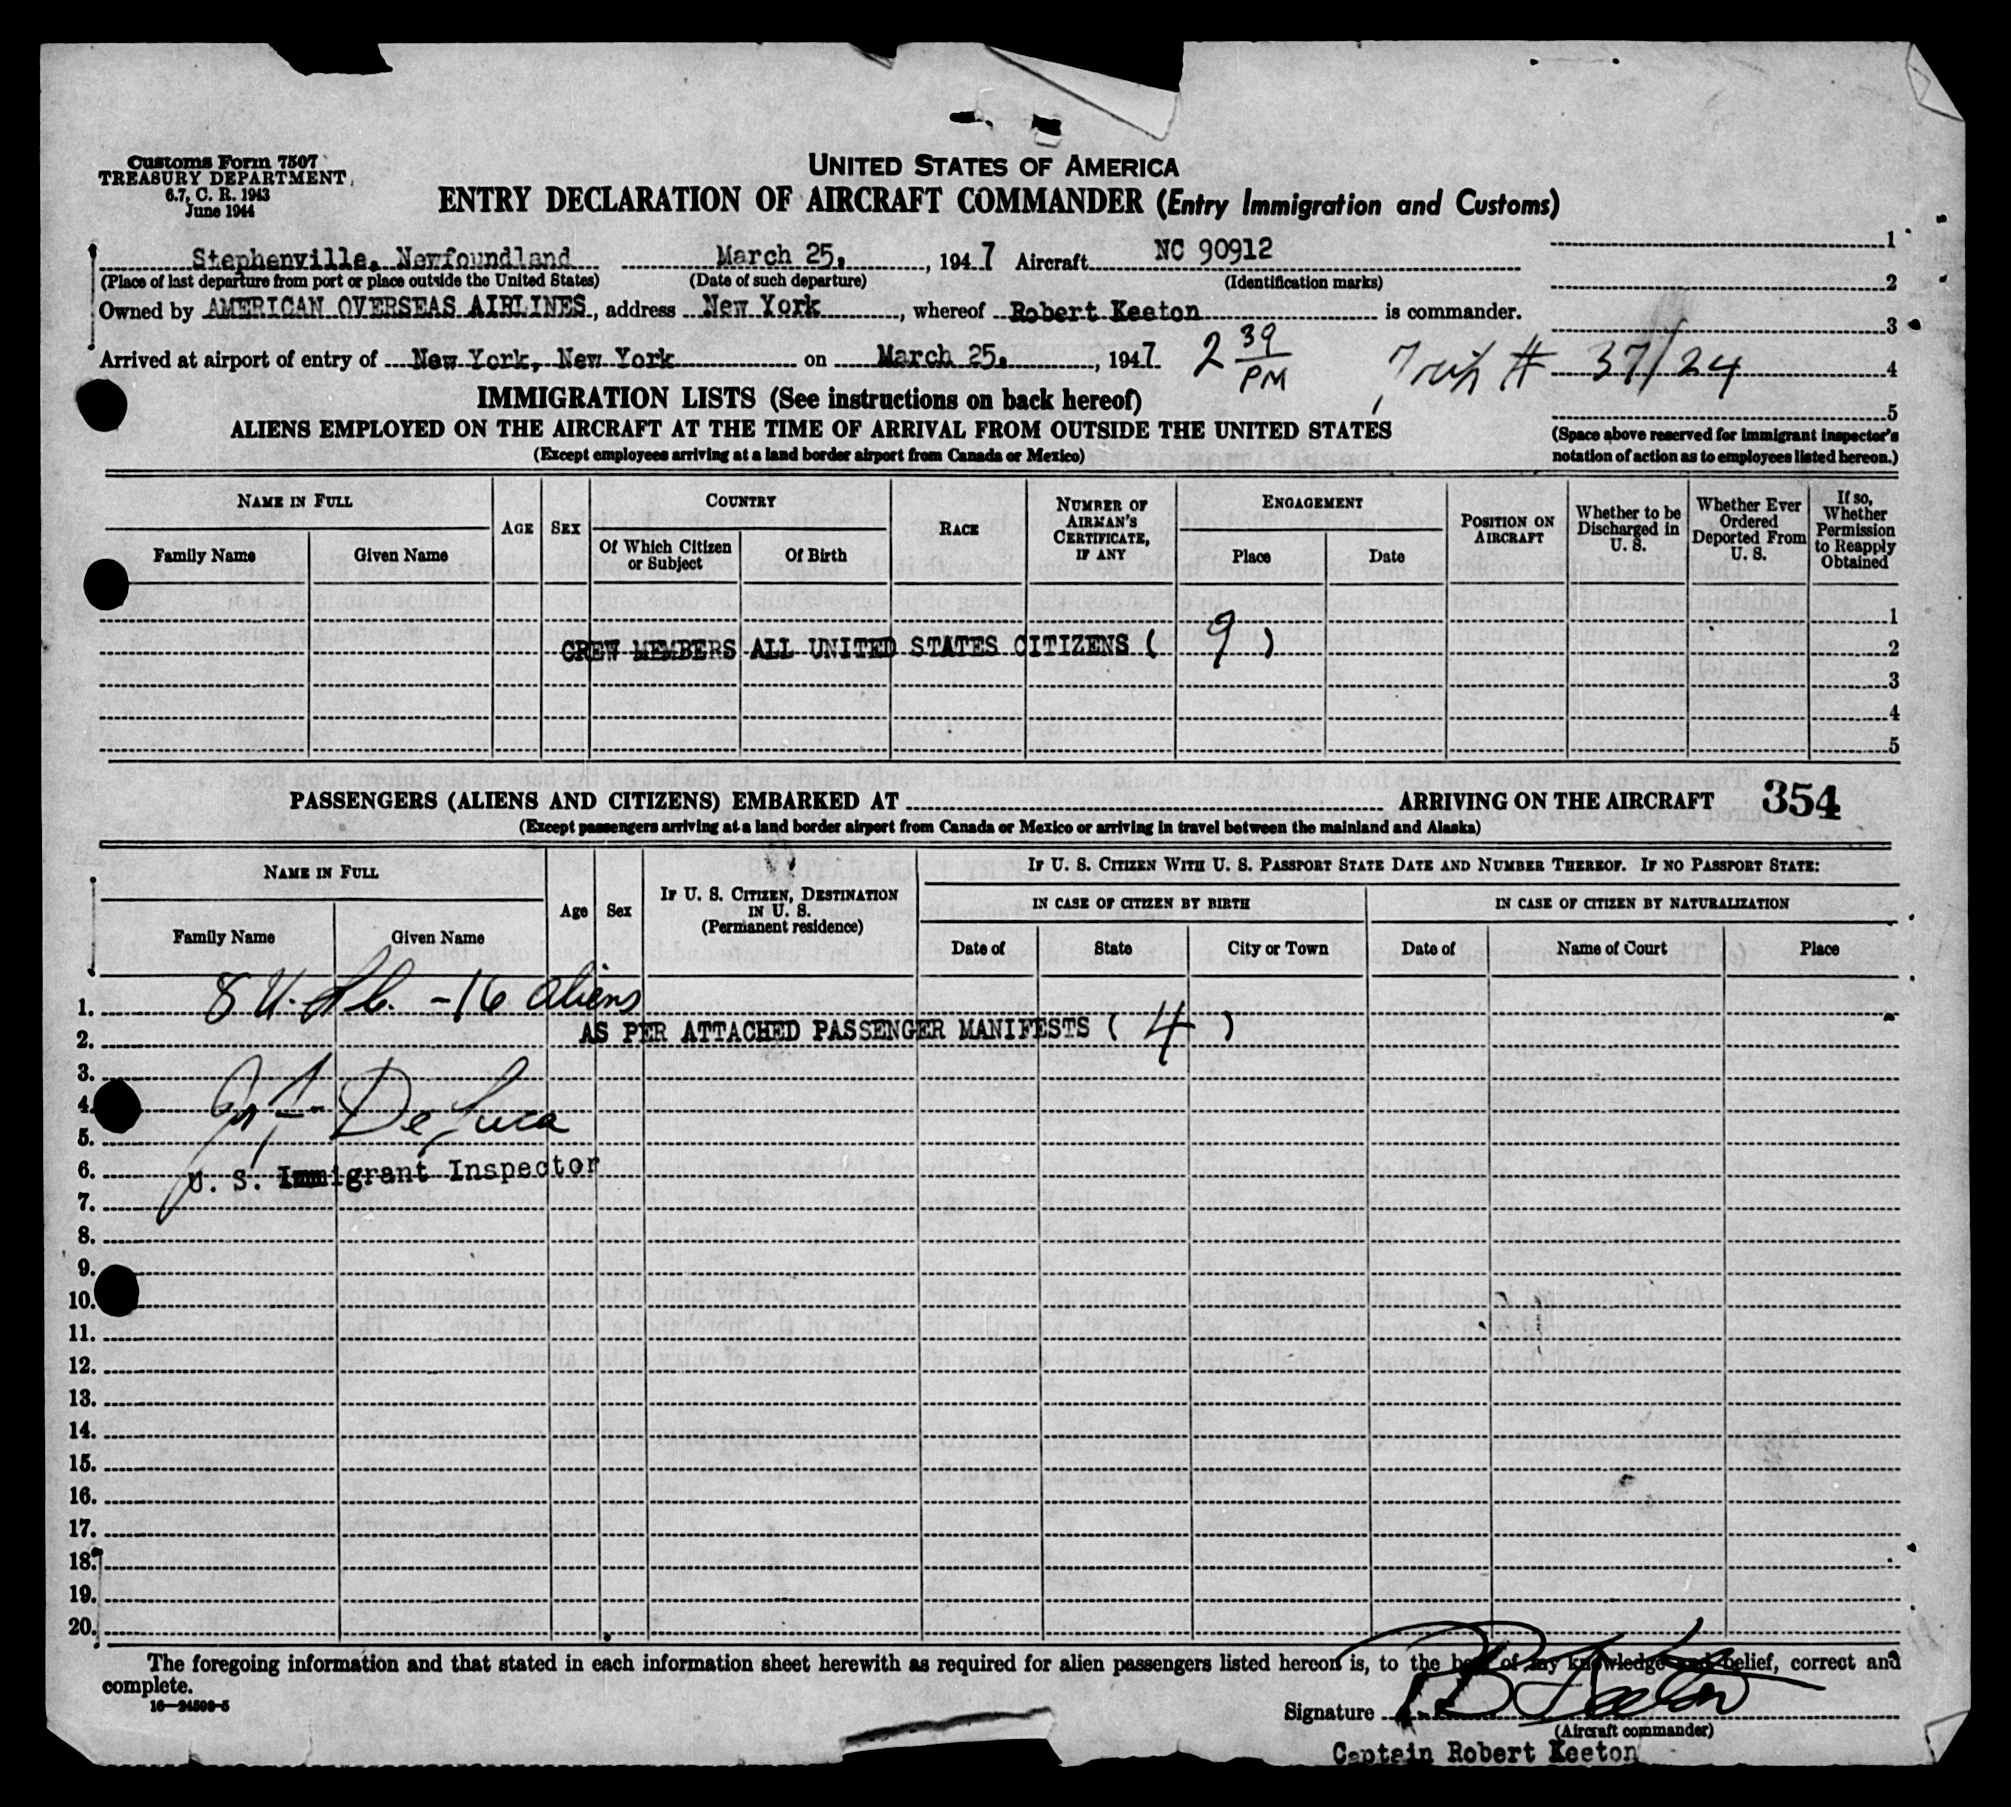 Customs Form 7507
TREASURY DEPARTMENT
6.7, C. R. 1943
June 1944
UNITED STATES OF AMERICA
ENTRY DECLARATION OF AIRCRAFT COMMANDER (Entry Immigration and Customs)
Stephenville, Newfoundland March 25, , 1947 Aircraft NC 90912
(Place of last departure from port or place outside the United States) (Date of such departure) (Identification marks)
Owned by AMERICAN OVERSEAS AIRLINES, address New York , whereof Robert Keeton is commander.
Arrived at airport of entry of New York, New York on March 25, , 1947 2 39 PM Trip # 37/24
1
2
3
4
5
(Space above reserved for immigrant inspector's
notation of action as to employees listed hereon.)
IMMIGRATION LISTS (See instructions on back hereof)
ALIENS EMPLOYED ON THE AIRCRAFT AT THE TIME OF ARRIVAL FROM OUTSIDE THE UNITED STATES
(Except employees arriving at a land border airport from Canada or Mexico)
NAME IN FULL
Family Name Given Name
AGE SEX
COUNTRY
Of Which Citizen or Subject
Of Birth
RACE
NUMBER OF AIRMAN'S CERTIFICATE, IF ANY
ENGAGEMENT
Place Date
POSITION ON AIRCRAFT
Whether to be Discharged in U. S.
Whether Ever Ordered Deported From U. S.
If so, Whether Permission to Reapply Obtained
1
CREW MEMBERS ALL UNITED STATES CITIZENS ( 9 ) 2
3
4
5
PASSENGERS (ALIENS AND CITIZENS) EMBARKED AT ARRIVING ON THE AIRCRAFT 354
(Except passengers arriving at a land border airport from Canada or Mexico or arriving in travel between the mainland and Alaska)
NAME IN FULL
Family Name Given Name
Age Sex
IF U. S. CITIZEN, DESTINATION IN U. S.
(Permanent residence)
IF U. S. CITIZEN WITH U. S. PASSPORT STATE DATE AND NUMBER THEREOF. IF NO PASSPORT STATE:
IN CASE OF CITIZEN BY BIRTH IN CASE OF CITIZEN BY NATURALIZATION
Date of State City or Town Date of Name of Court Place
1. 8 U. - 16 aliens
2. AS PER ATTACHED PASSENGER MANIFESTS ( 4 )
3.
4. De Luca
5.
6. U. S. Immigrant Inspector
7.
8.
9.
10.
11.
12.
13.
14.
15.
16.
17.
18.
19.
20.
The foregoing information and that stated in each information sheet herewith as required for alien passengers listed hereon is, to the best of my knowledge and belief, correct and
complete.
16—24500-5
Signature R B Keeton
(Aircraft commander)
Captain Robert Keeton